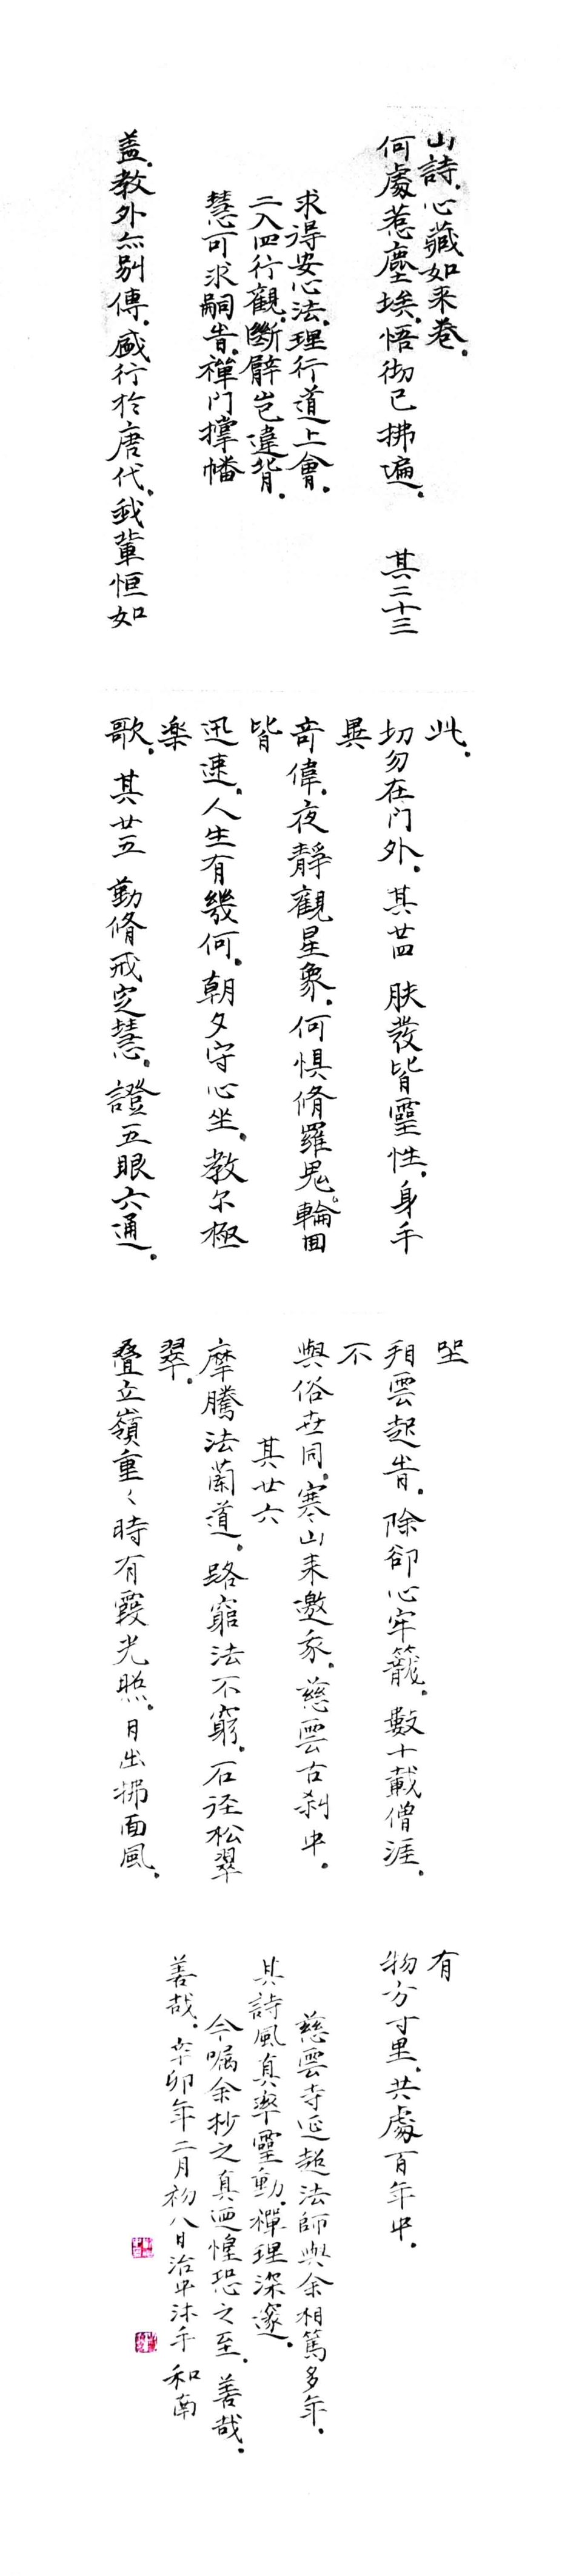 山詩。心藏如来卷。
何處惹塵埃。悟彻已拂遍。 其二十三
求得安心法。理行道上會。
二入四行觀。斷臂岂違背。
慧可求嗣时。禪门撑幡
蓋。教外无别傳。盛行於唐代。我輩恒如
此。
切勿在门外。 其廿四 肤发皆靈性。身手
異
奇偉。夜靜觀星象。何惧脩羅鬼。輪回
皆
迅速。人生有幾何。朝夕守心坐。教尔極
楽
歌。 其廿五 勤脩戒定慧。證五眼六通。
坐
看雲起时。除卻心牢籠。數十載僧涯。
不
與俗世同。寒山来邀我。慈雲古刹中。
其廿六
摩騰法蘭道。路窮法不窮。石径松翠
翠。
叠立嶺重〻時有霞光照。月出拂面風。
有
物方寸里。共處百年中。
慈雲寺延超法師與余相篤多年。
其詩風真率靈動。禪理深邃。
今嘱余抄之真迺惶恐之至。善哉。
善哉。辛卯年二月初八日治中沐手 和南